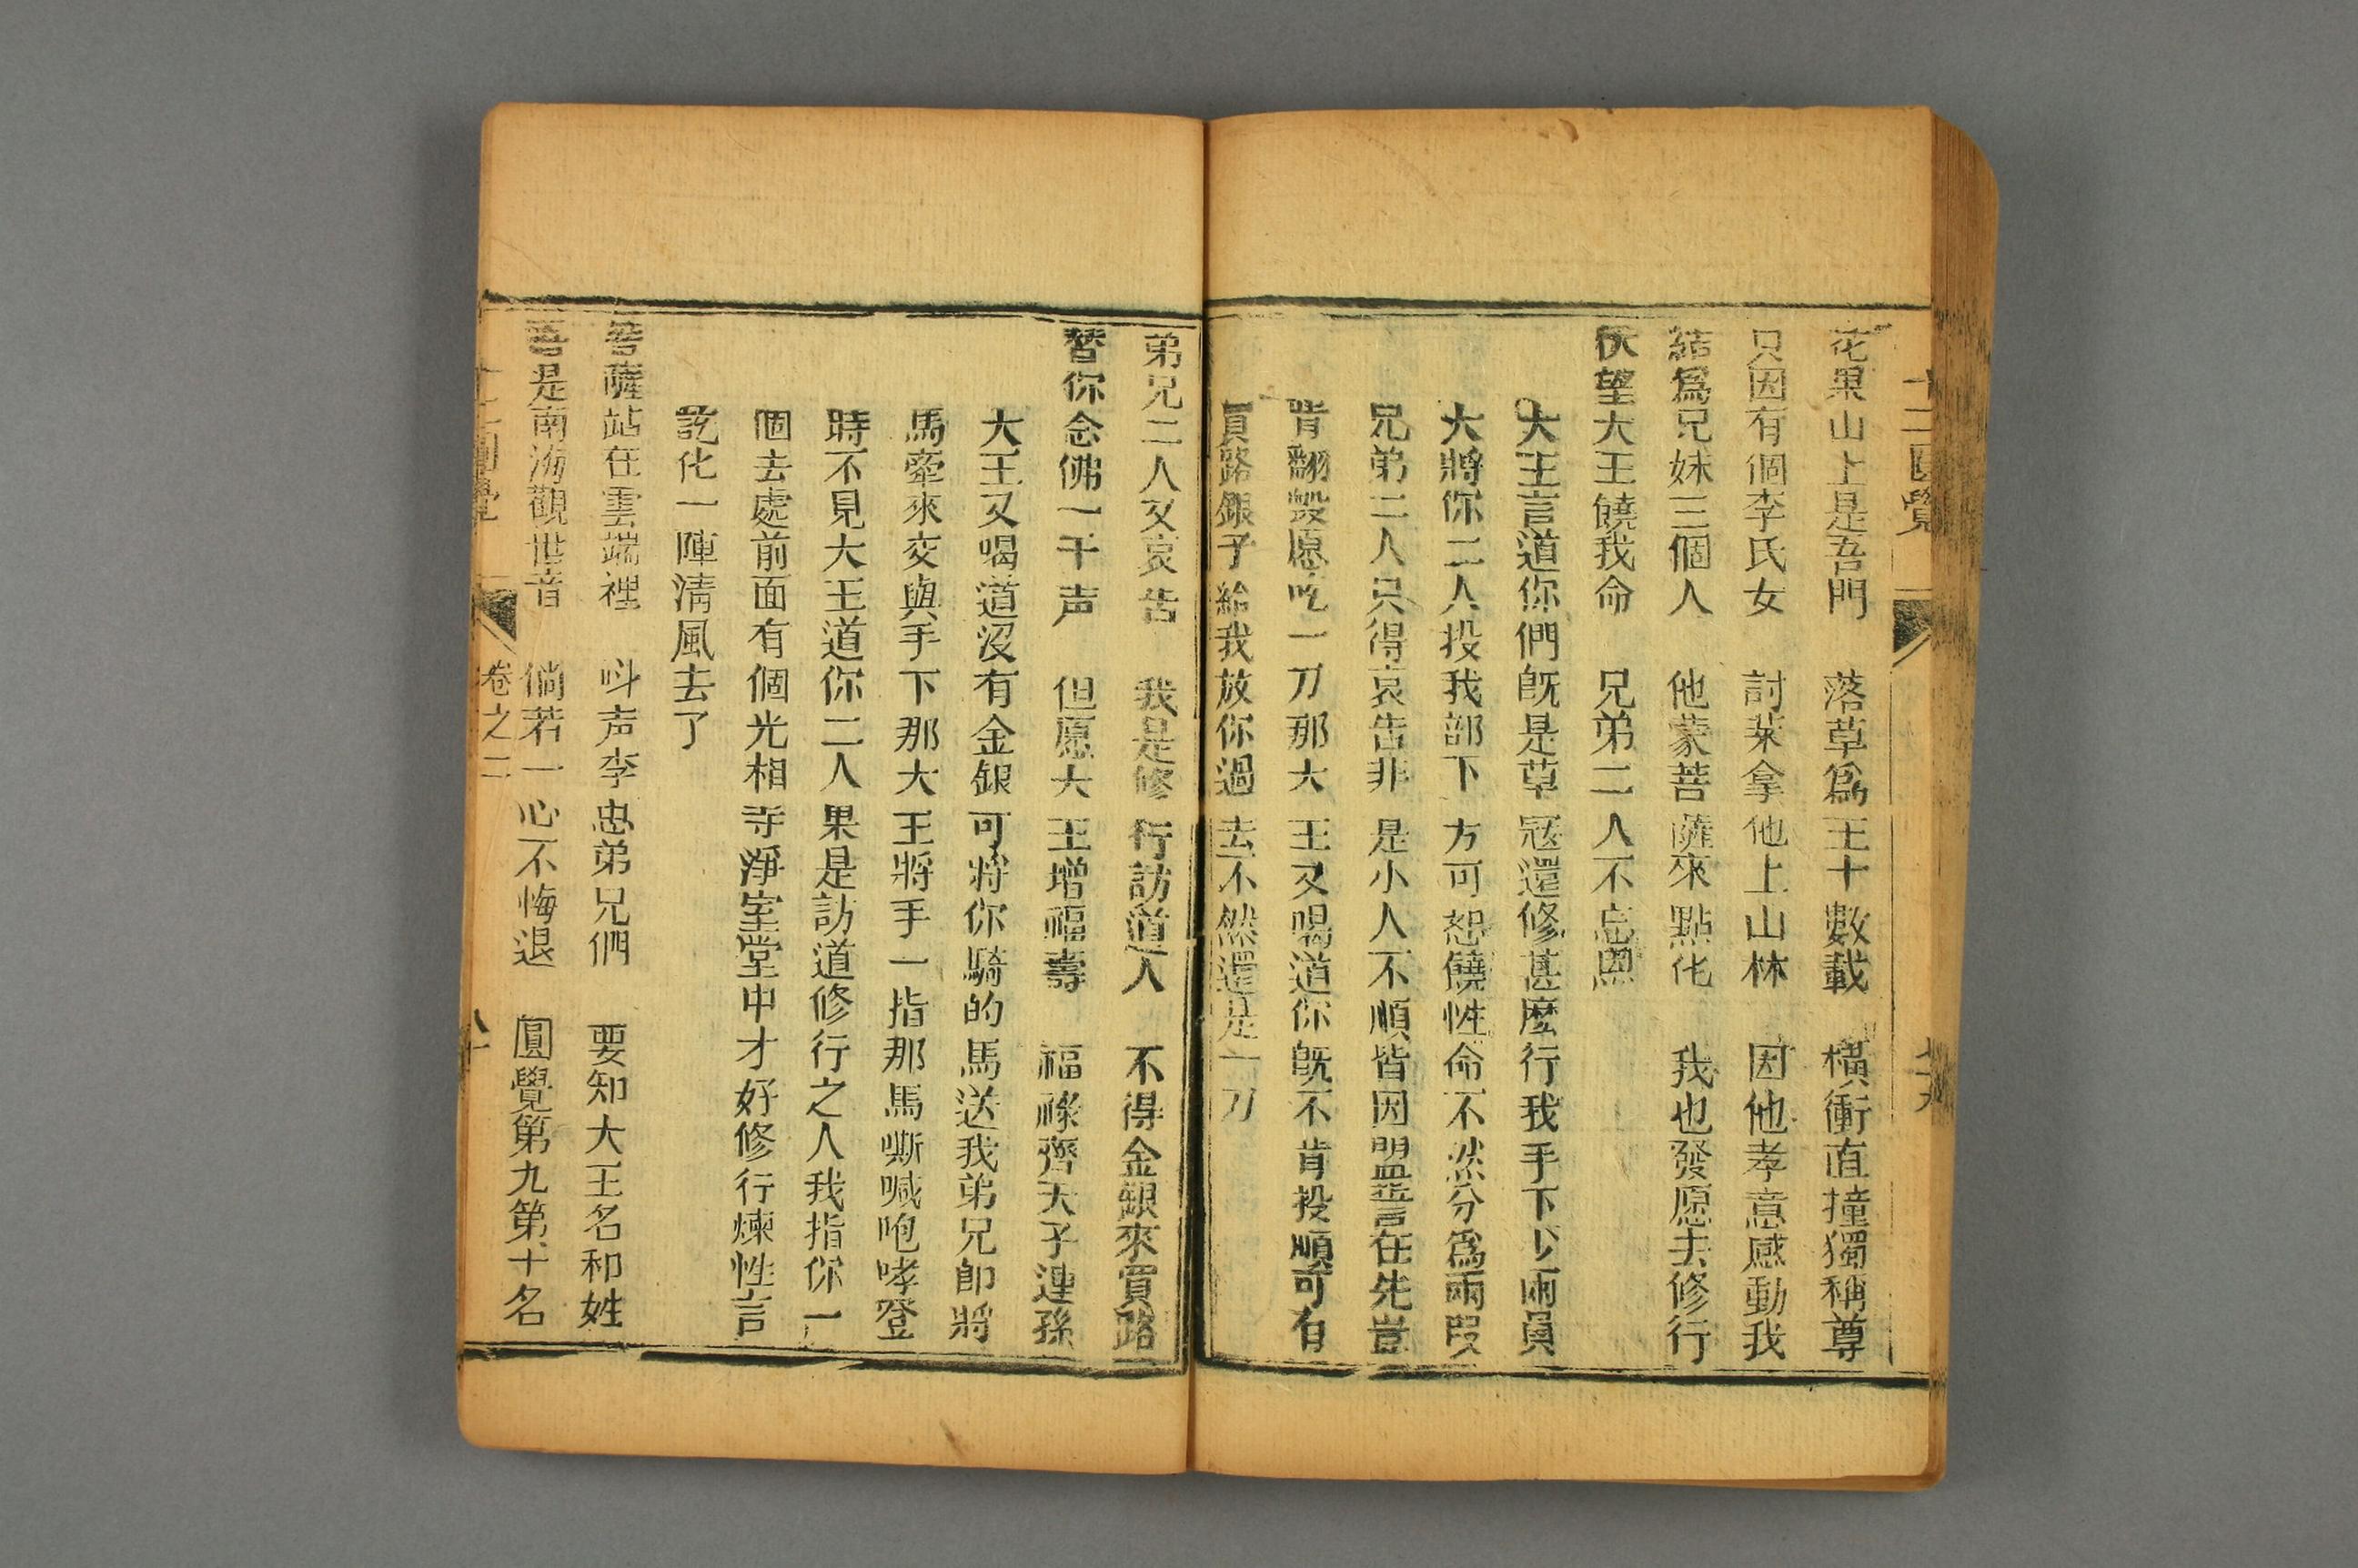 十二圓覺
花果山上是吾門　落草爲王十數載　橫衝直撞獨稱尊
只因有個李氏女　討菜拿他上山林　因他孝意感動我
結爲兄妹三個人　他蒙菩薩來點化　我也發愿去修行
伏望大王饒我命　兄弟二人不忘恩
大王言道你們旣是草寇還修甚麼行我手下少兩員
大將你二人投我部下方可恕饒性命不然分爲兩段
兄弟二人只得哀告非是小人不順皆因盟誓在先豈
肯翻毀愿吃一刀那大王又喝道你旣不肯投順可有
買路銀子給我放你過去不然還是一刀
弟兄二人又哀告　我是修行訪道人　不得金銀來買路
替你念佛一千声　但愿大王增福壽　福祿齊天子連孫
大王又喝道沒有金銀可將你騎的馬送我弟兄卽將
馬牽來交與手下那大王將手一指那馬嘶喊咆哮登
時不見大王道你二人果是訪道修行之人我指你一
個去處前面有個光相寺淨室堂中才好修行煉性言
訖化一陣清風去了
菩薩站在雲端裡　呌声李忠弟兄們　要知大王名和姓
吾是南海觀世音　倘若一心不悔退　圓覺第九第十名
十二圓覺　卷之二　八十